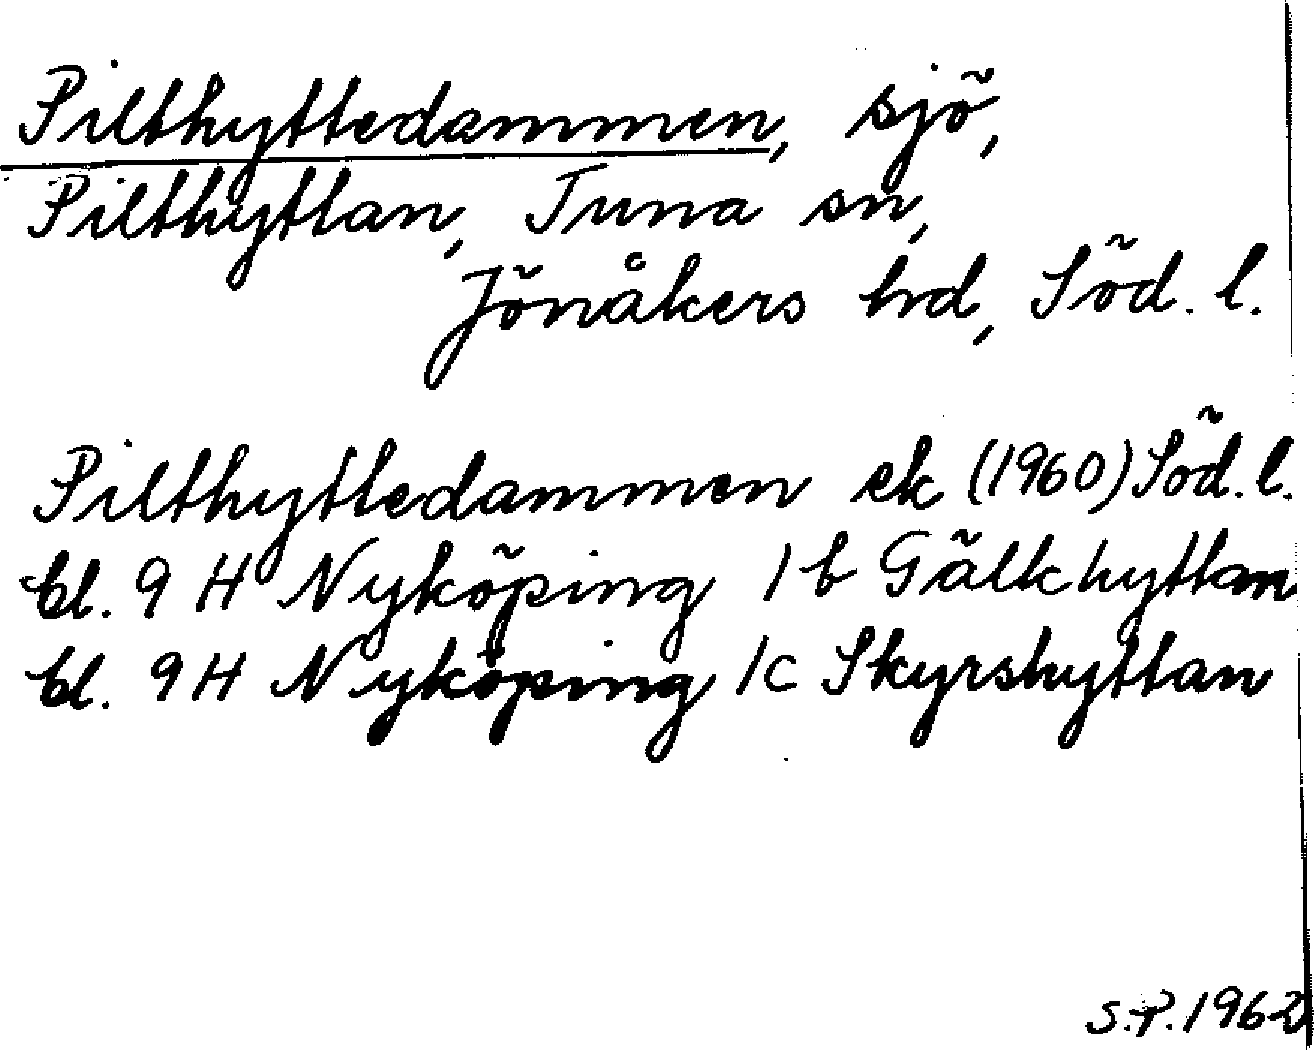 Pilthyttedammen, sjö,
Pilthyttan, Tuna sn,
Jönåkers hd, Söd. l.
Pilthyttedammen ek (1960) Söd. l.
bl. 9 H Nyköping 1 b Gälkhyttan
bl. 9 H Nyköping 1c Skyrshyttan
S.P. 1962